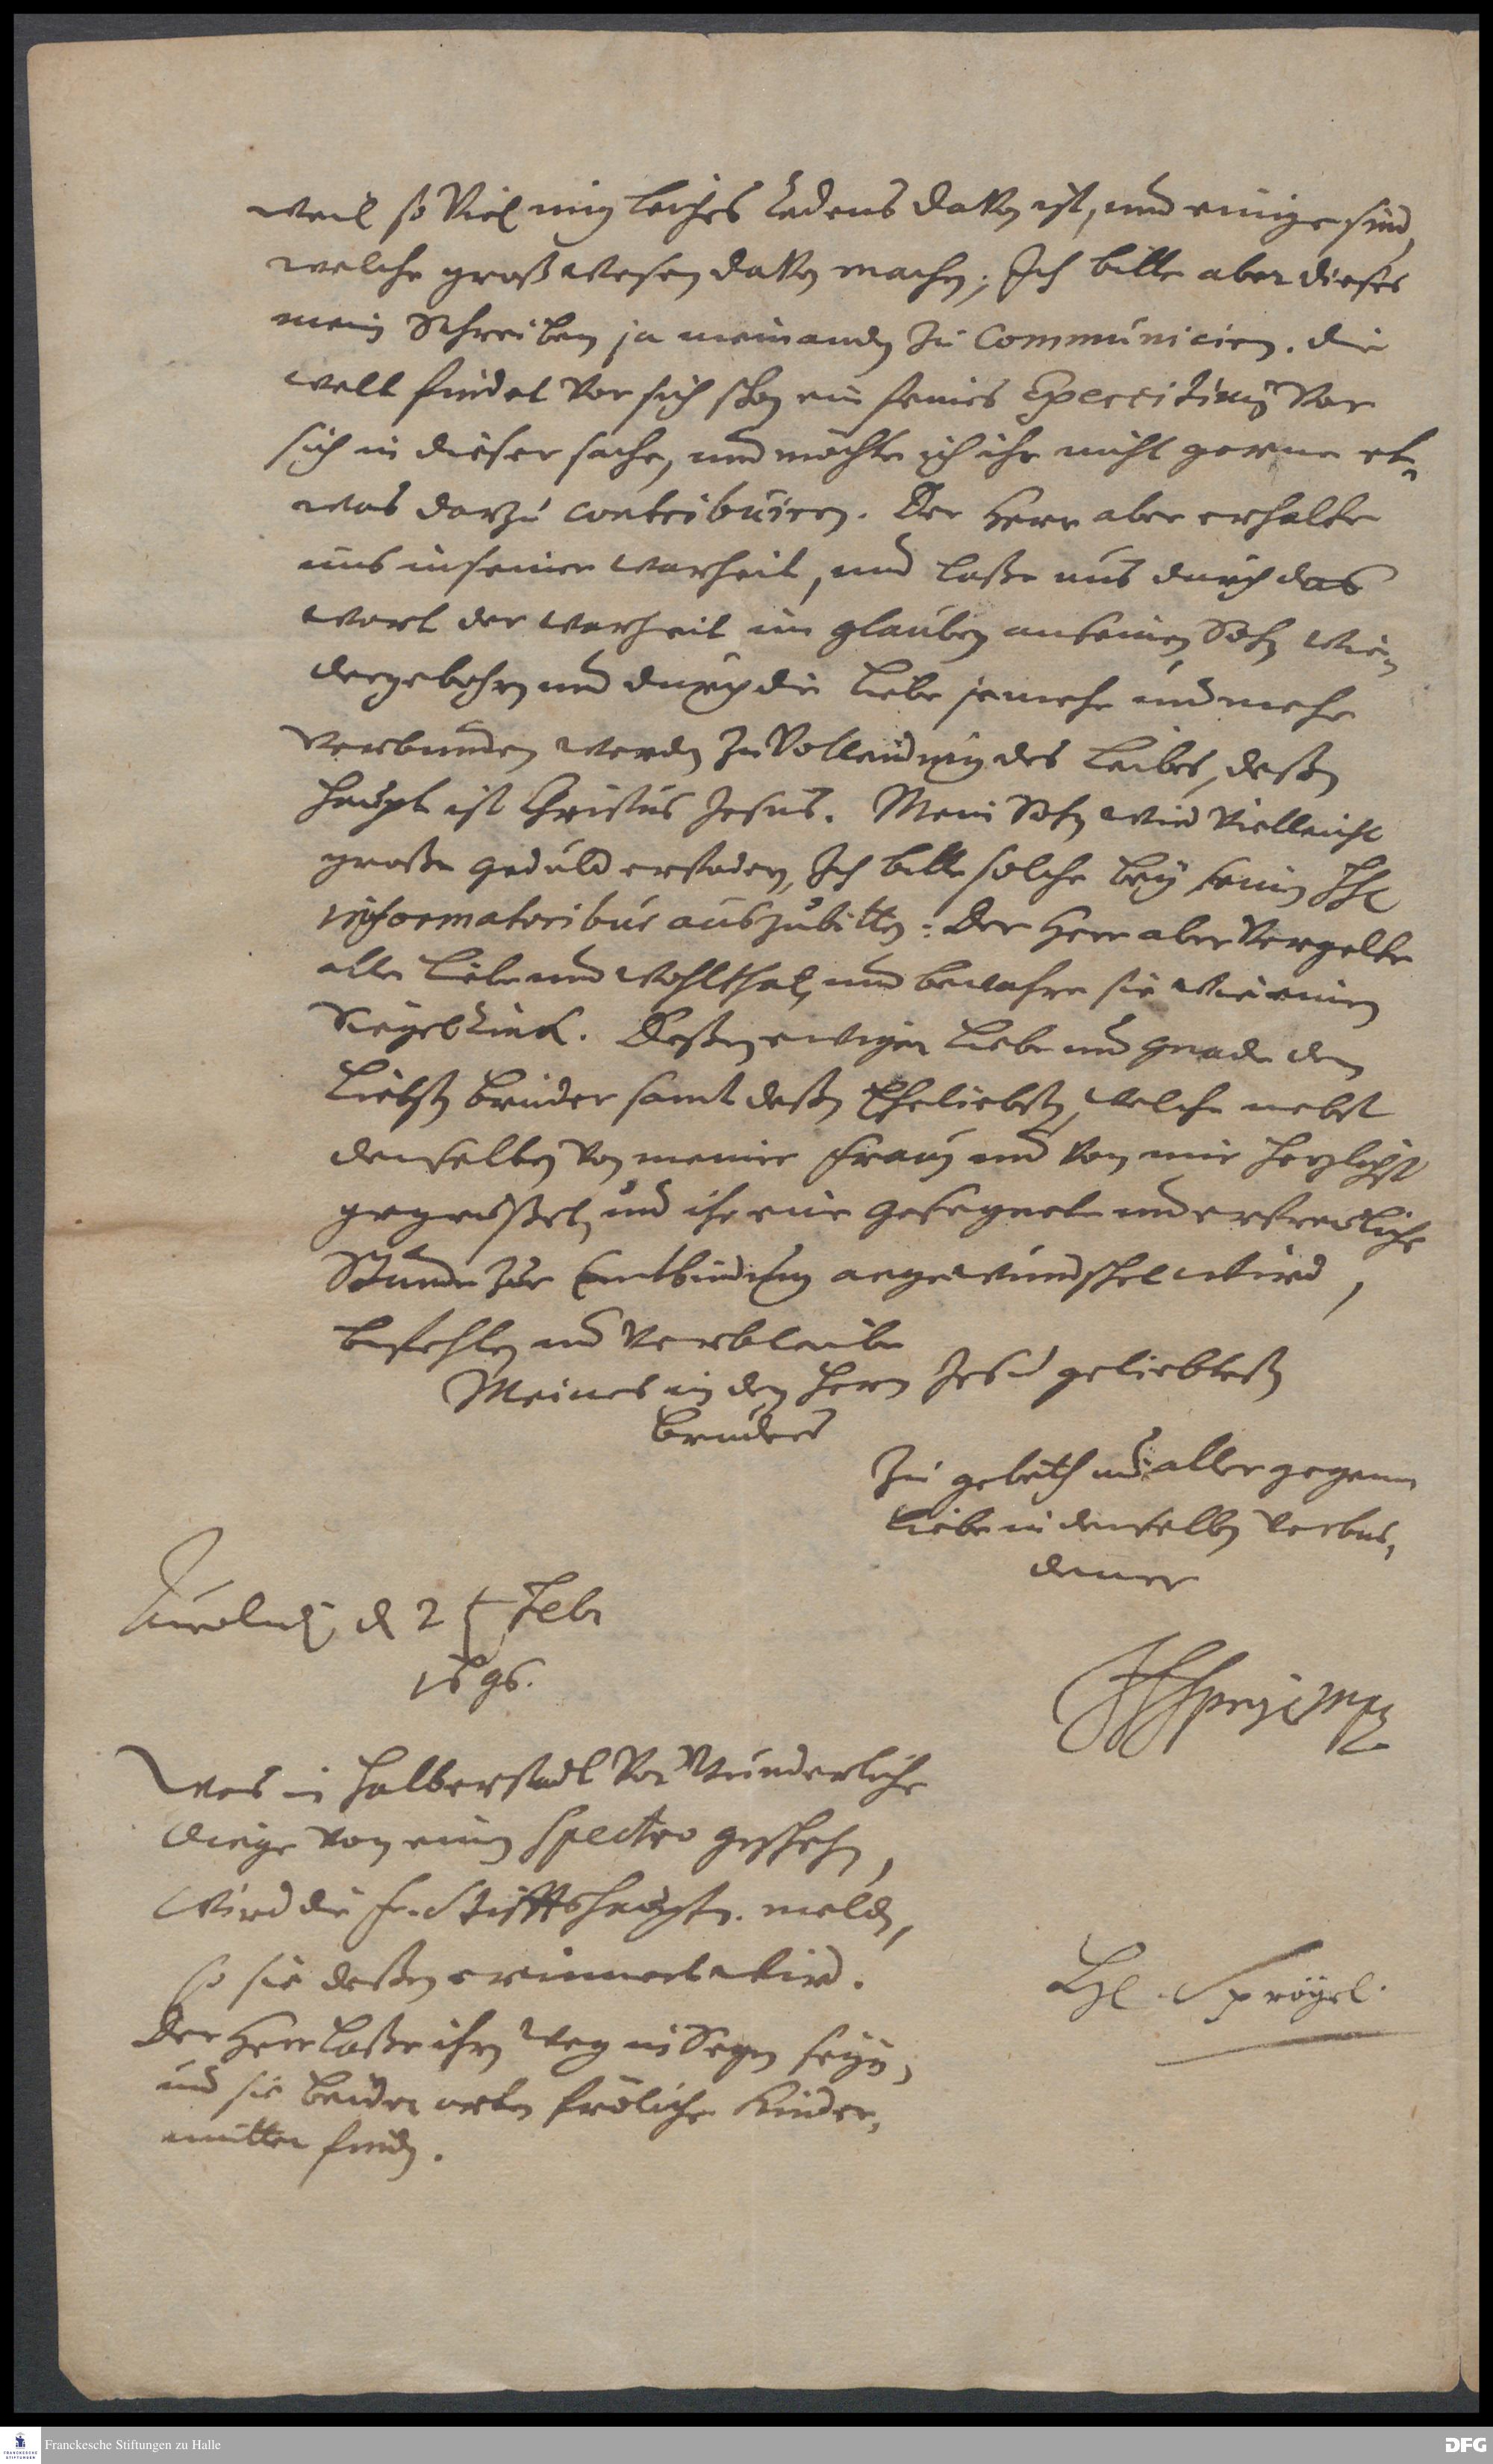 weil so viel ungleiches Redens davon ist, und einige sind,
welche groß wesen davon machen; Ich bitte aber dieses
mein Schreiben ja niemanden zu communiciren. die
welt findet vor sich schon ein feines Exercitium vor
sich in dieser sache, und möchte ich ihr nicht gerne et¬
was darzu contribuiren. Der Herr aber erhalte
uns in seiner warheit, und laße uns durch das
wort der warheit im glauben an seinen Sohn wie¬
dergebohren und durch die Liebe je mehr und mehr
verbunden werden zu vollendung des Leibes, deßen
haupt ist Christus Jesus. Mein Sohn wird vielleicht
große gedult erfodern, Ich bitte solche bey seinen HH
informatoribus auszubitten: Der Herr aber vergelte
alle Liebe und wohlthat, und bewahre sie wie einen
Siegelring. Deßen ewiger Liebe und gnade den
Liebsten bruder samt deßen Eheliebsten, welche nebst
denselben von meiner Frauen und von mir herzlichst
gegrüßet, und ihr eine gesegnete und erfreuliche
Stunde zur Entbindung angewünschet wird,
befehlen und verbleibe
Meines in dem Herrn Jesu geliebtesten
bruders
Zu gebeth und aller gegen
Liebe in denselben verbun¬
dener
Quedl. d 25 Febr
1696.
JHSprögel
Was in Halberstadt vor wunderliche
dinge von einem Spectro geschehen,
wird die Fr. Stifftshauptm. melden,
so sie deßen erinnert wird.
Der Herr laße ihren weg im Segen seyn,
und sie beider orten fröliche Kinder¬
mutter finden.
H. Sprögel.
Franckesche Stiftungen zu Halle
FRANCKESCHE STIFTUNGEN
DFG